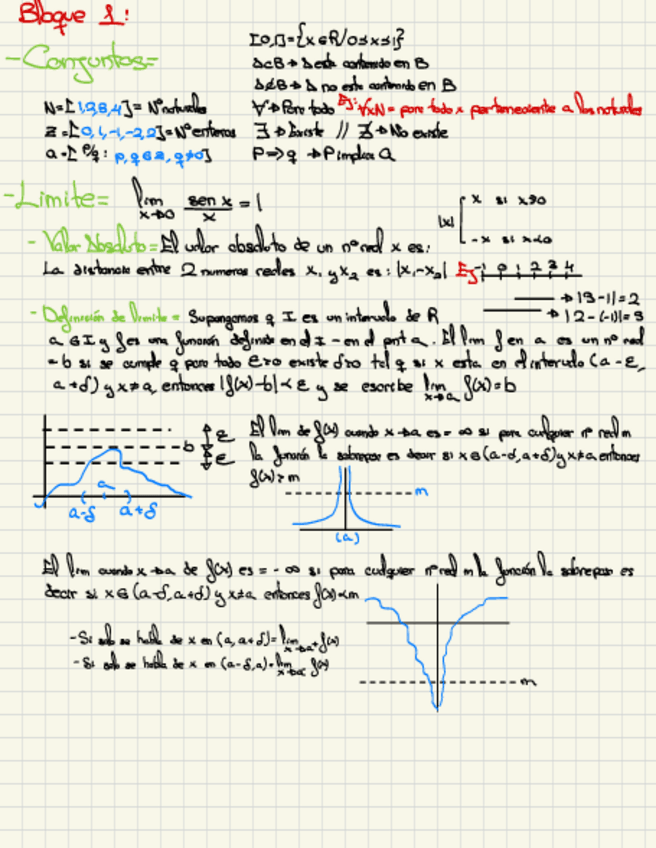 Bloque 1:
-Conjuntos=
[0,1]={x∈R/0≤x≤1}
A⊂B → A está contenido en B
A⊄B → A no esta contenido en B
N=[1,2,3,4]= Nº naturales
∀→Para todo Ej: ∀x N= para todo x perteneciente a los naturales
Z=[0,1,-1,-2,2]=Nº enteros
∃→Existe // ∄→No existe
Q=[P/q: p,q∈Z, q≠0]
P=>q →P implica Q
-Limite= lim x→0 sen x/x = 1
|x| [ x si x≥0
-x si x<0
- Valor Absoluto= El valor absoluto de un nº real x es:
La distancia entre 2 numeros reales x₁ y x₂ es: |x₁-x₂| Ej -1 0 1 2 3 4
→|3-1|=2
→|2-(-1)|=3
- Definición de limite= Supongamos q I es un intervalo de R
a∈I y f es una función definida en el I - en el pnt a. El lim f en a es un nº real
=b si se cumple q para todo ε>0 existe δ>0 tal q si x esta en el intervalo (a-ε,
a+δ) y x≠a, entonces |f(x)-b|<ε y se escribe lim x→a f(x)=b
b ε
ε
a
a-δ a+δ
El lim de f(x) cuando x→a es=∞ si para cualquier nº real m
la función lo sobrepasa es decir si x∈(a-δ,a+δ) y x≠a entonces
f(x)>m
m
(a)
El lim cuando x→a de f(x) es =-∞ si para cualquier nº real m la función lo sobrepasa es
decir si x∈(a-δ,a+δ) y x≠a entonces f(x)<m
-Si solo se habla de x en (a,a+δ)=lim x→a⁺ f(x)
-Si solo se habla de x en (a-δ,a)=lim x→a⁻ f(x)
m